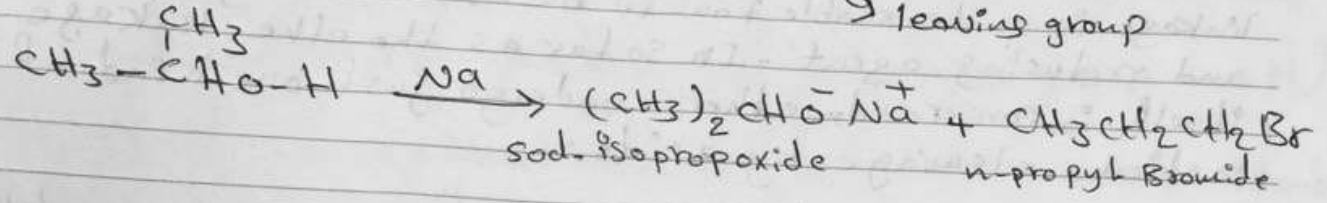 → leaving group
CH3
CH3 - CHO-H Na → (CH3)2 CHO⁻ Na⁺ + CH3CH2CH2Br
sod. isopropoxide n-propyl Bromide